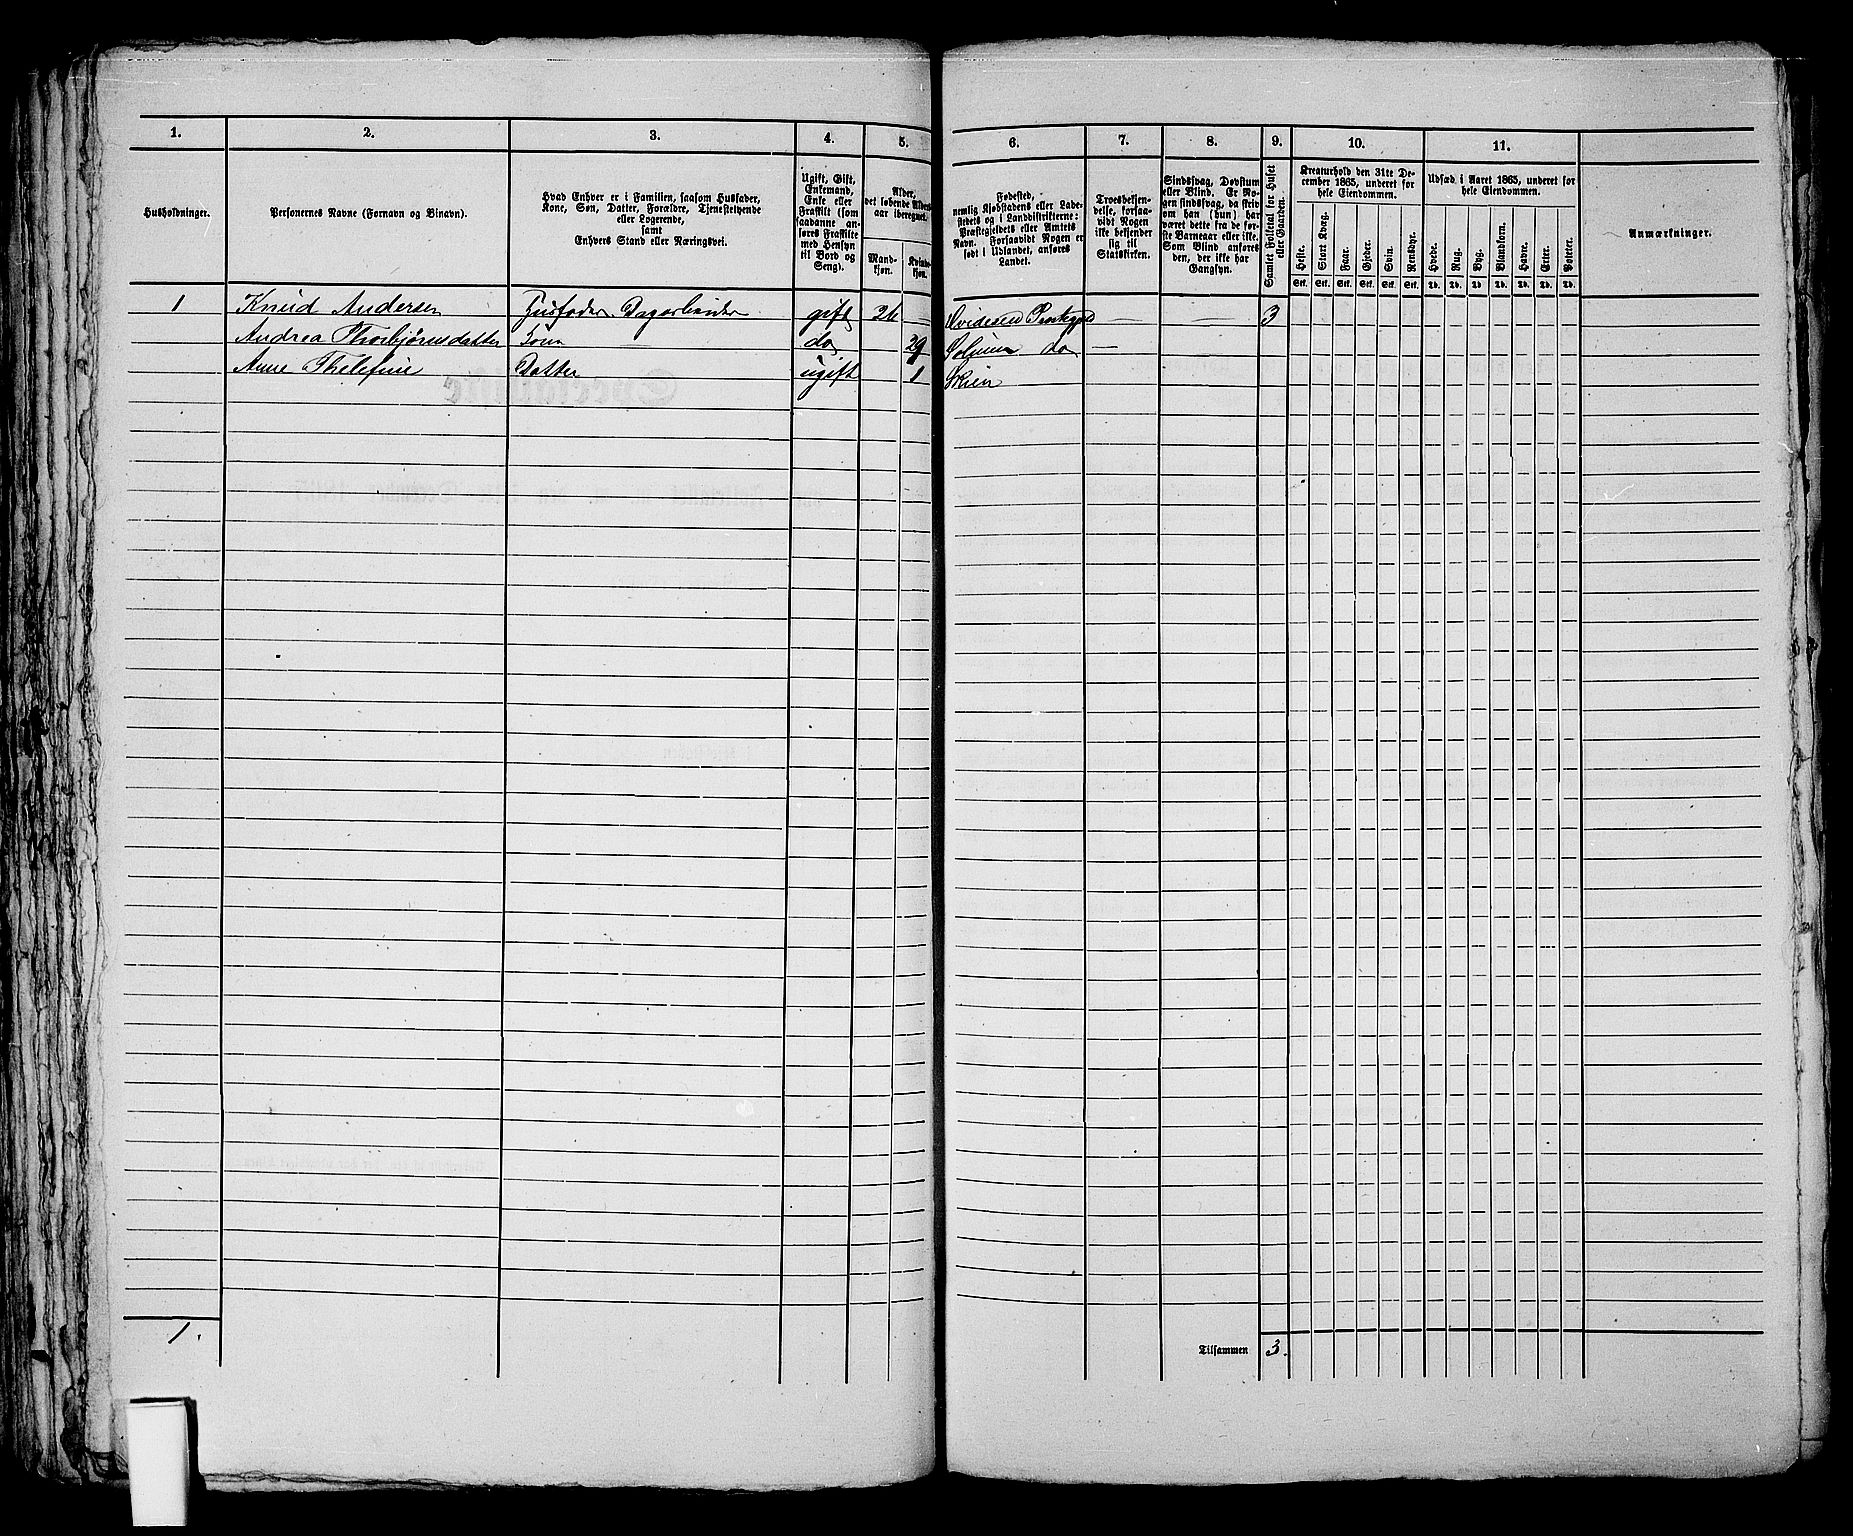 1. 2. 3. 4. 5. 6. 7. 8. 9. 10. 11.
Husholdninger.
Personernes Navne (Fornavn og Binavn).
Hvad Enhver er i Familien, saasom Husfader,
Kone, Søn, Datter, Forældre, Tjenestetyende
eller Logerende,
samt
Enhvers Stand eller Næringsvei.
Ugift, Gift,
Enkemand,
Enke eller
Fraskilt (som
saadanne an-
føres Fraskilte
med Hensyn
til Bord og
Seng).
Alder,
det løbende Alders-
aar iberegnet.
Mand-
kjøn.
Kvinde-
kjøn.
Fødested,
nemlig Kjøbstadens eller Lade-
stedets og i Landdistrikterne:
Præstegjeldets eller Amtets
Navn. Forsaavidt Nogen er
født i Udlandet, anføres
Landet.
Troesbekjen-
delse, forsaa-
vidt Nogen
ikke bekjender
sig til
Statskirken.
Sindssvag, Døvstum
eller Blind. Er No-
gen sindssvag, da skriv
om han (hun) har
været dette fra de før-
ste Barneaar eller ikke.
Som Blind anføres
den, der ikke har
Gangsyn.
Samlet Folketal for Huset
eller Gaarden.
Kreaturhold den 31te De-
cember 1865, underet for
hele Eiendommen.
Heste. Stort Kvæg. Faar. Gjeder. Svin. Rensdyr.
Stk. Stk. Stk. Stk. Stk. Stk.
Udsæd i Aaret 1865, underet for
hele Eiendommen.
Hvede. Rug. Byg. Blandkorn. Havre. Erter. Poteter.
Td. Td. Td. Td. Td. Td. Td.
Anmærkninger.
1 Knud Andersen Husfader Dagarbeider gift 26 — Præstegjeld — — 3
Andrea Thorbjørnsdatter Kone — do 29 Solum do —
Anne Thelefine Datter ugift 1 Skien
1.
Tilsammen 3.